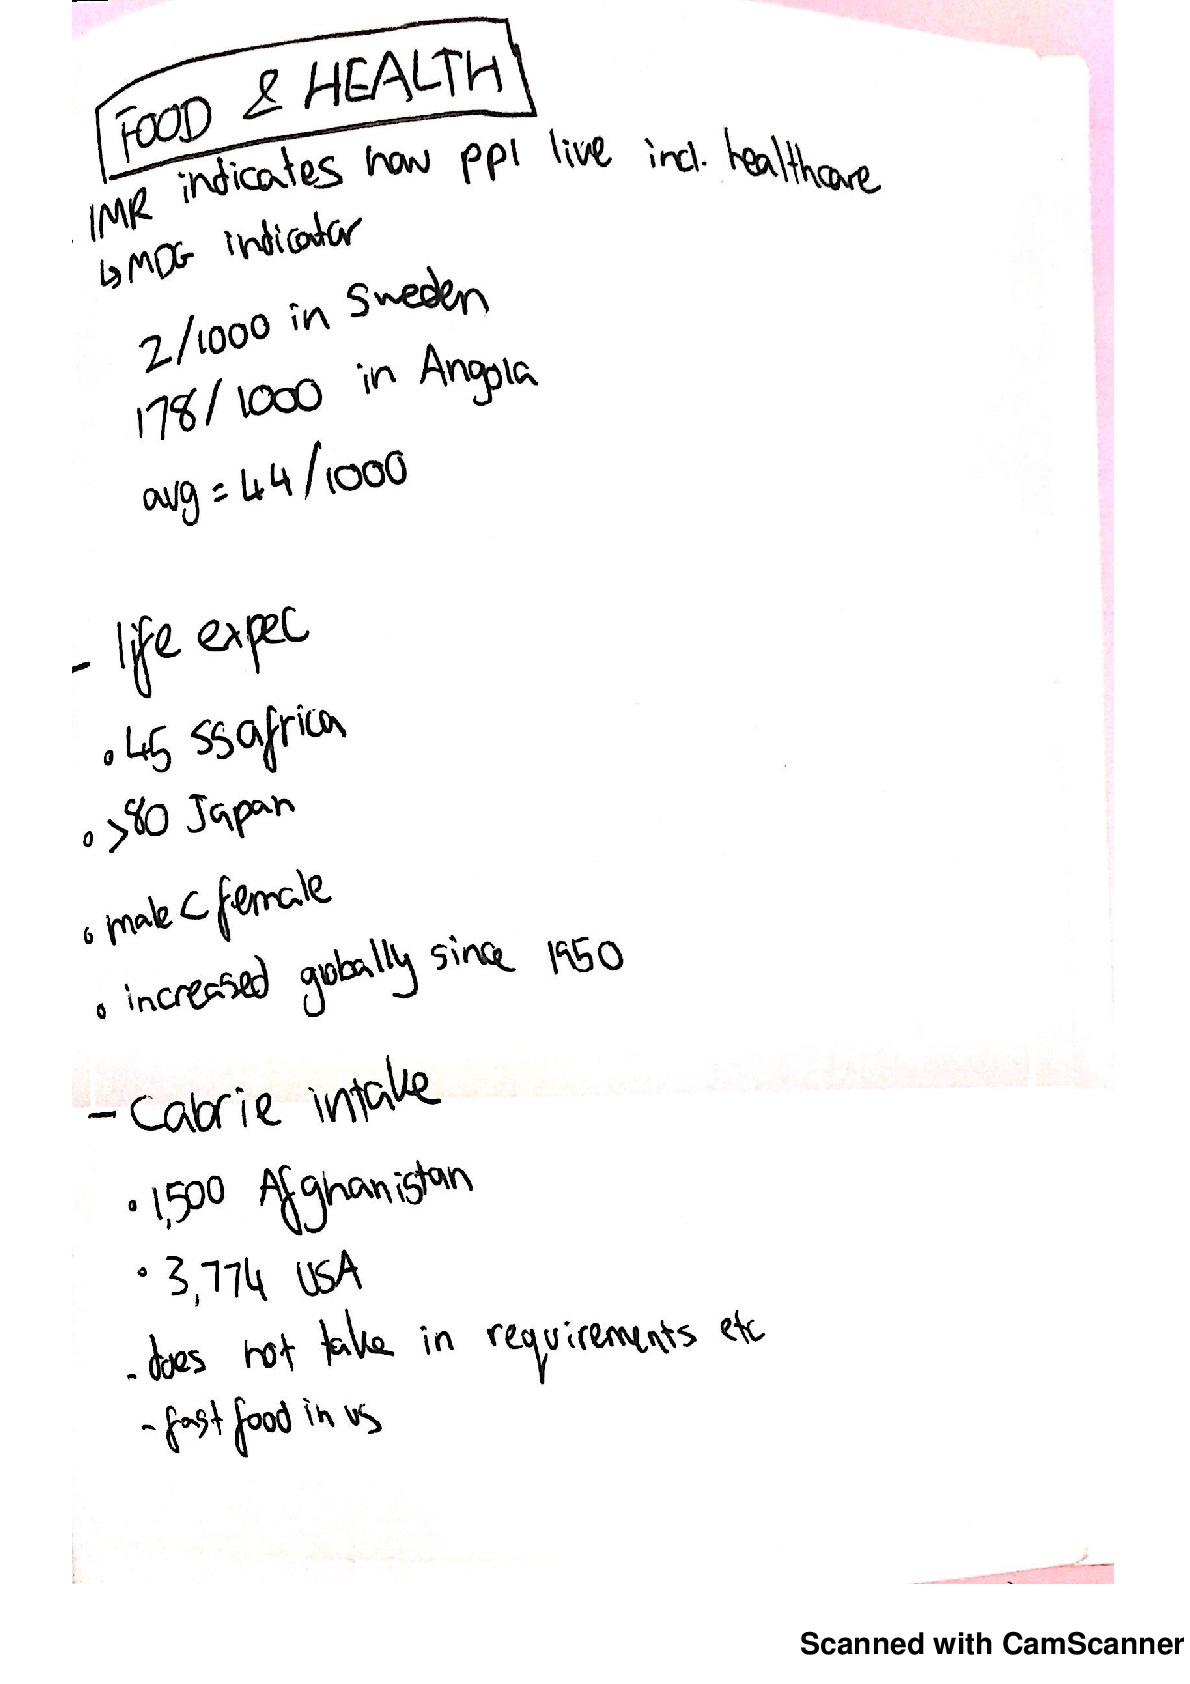 FOOD & HEALTH
IMR indicates how ppl live incl. healthcare
↳ MDG indicator
2/1000 in Sweden
178/1000 in Angola
avg = 44/1000
- life expec
• 45 ssafrica
• >80 Japan
• male < female
• increased globally since 1950
- Calorie intake
• 1,500 Afghanistan
• 3,774 USA
- does not take in requirements etc
- fast food in us
Scanned with CamScanner